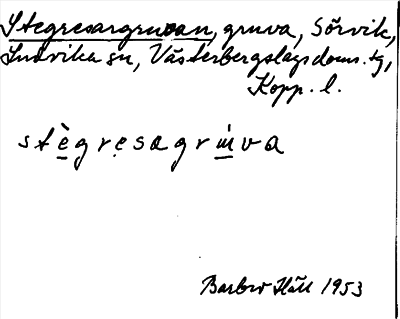 Stegresargruvan, gruva, Sörvik,
Ludvika sn, Västerbergslags doms. tg,
Kopp. l.
stègresagrùva
Barbro Häll 1953